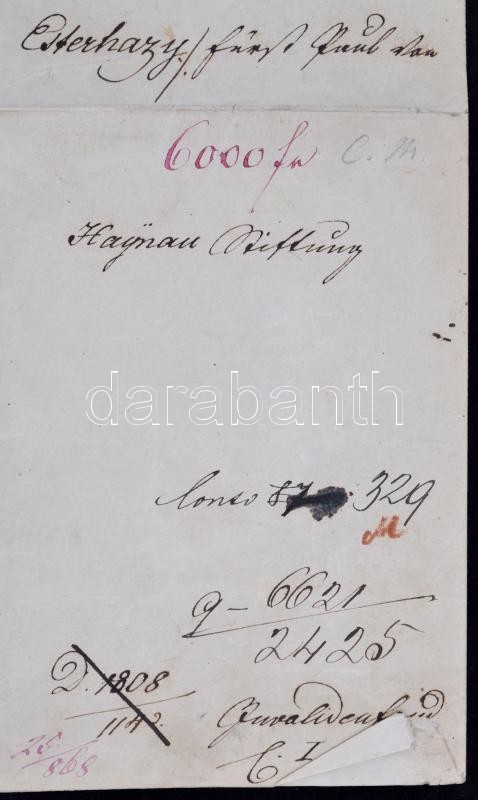 Esterhazy / Fürst Paul von
6000 fr C. M
Haÿnau Stiftung
darabanth
Conto 87 329
M
9 - 6621
2425
D. 1808
1142.
Invalidenfond
25/868
C. I